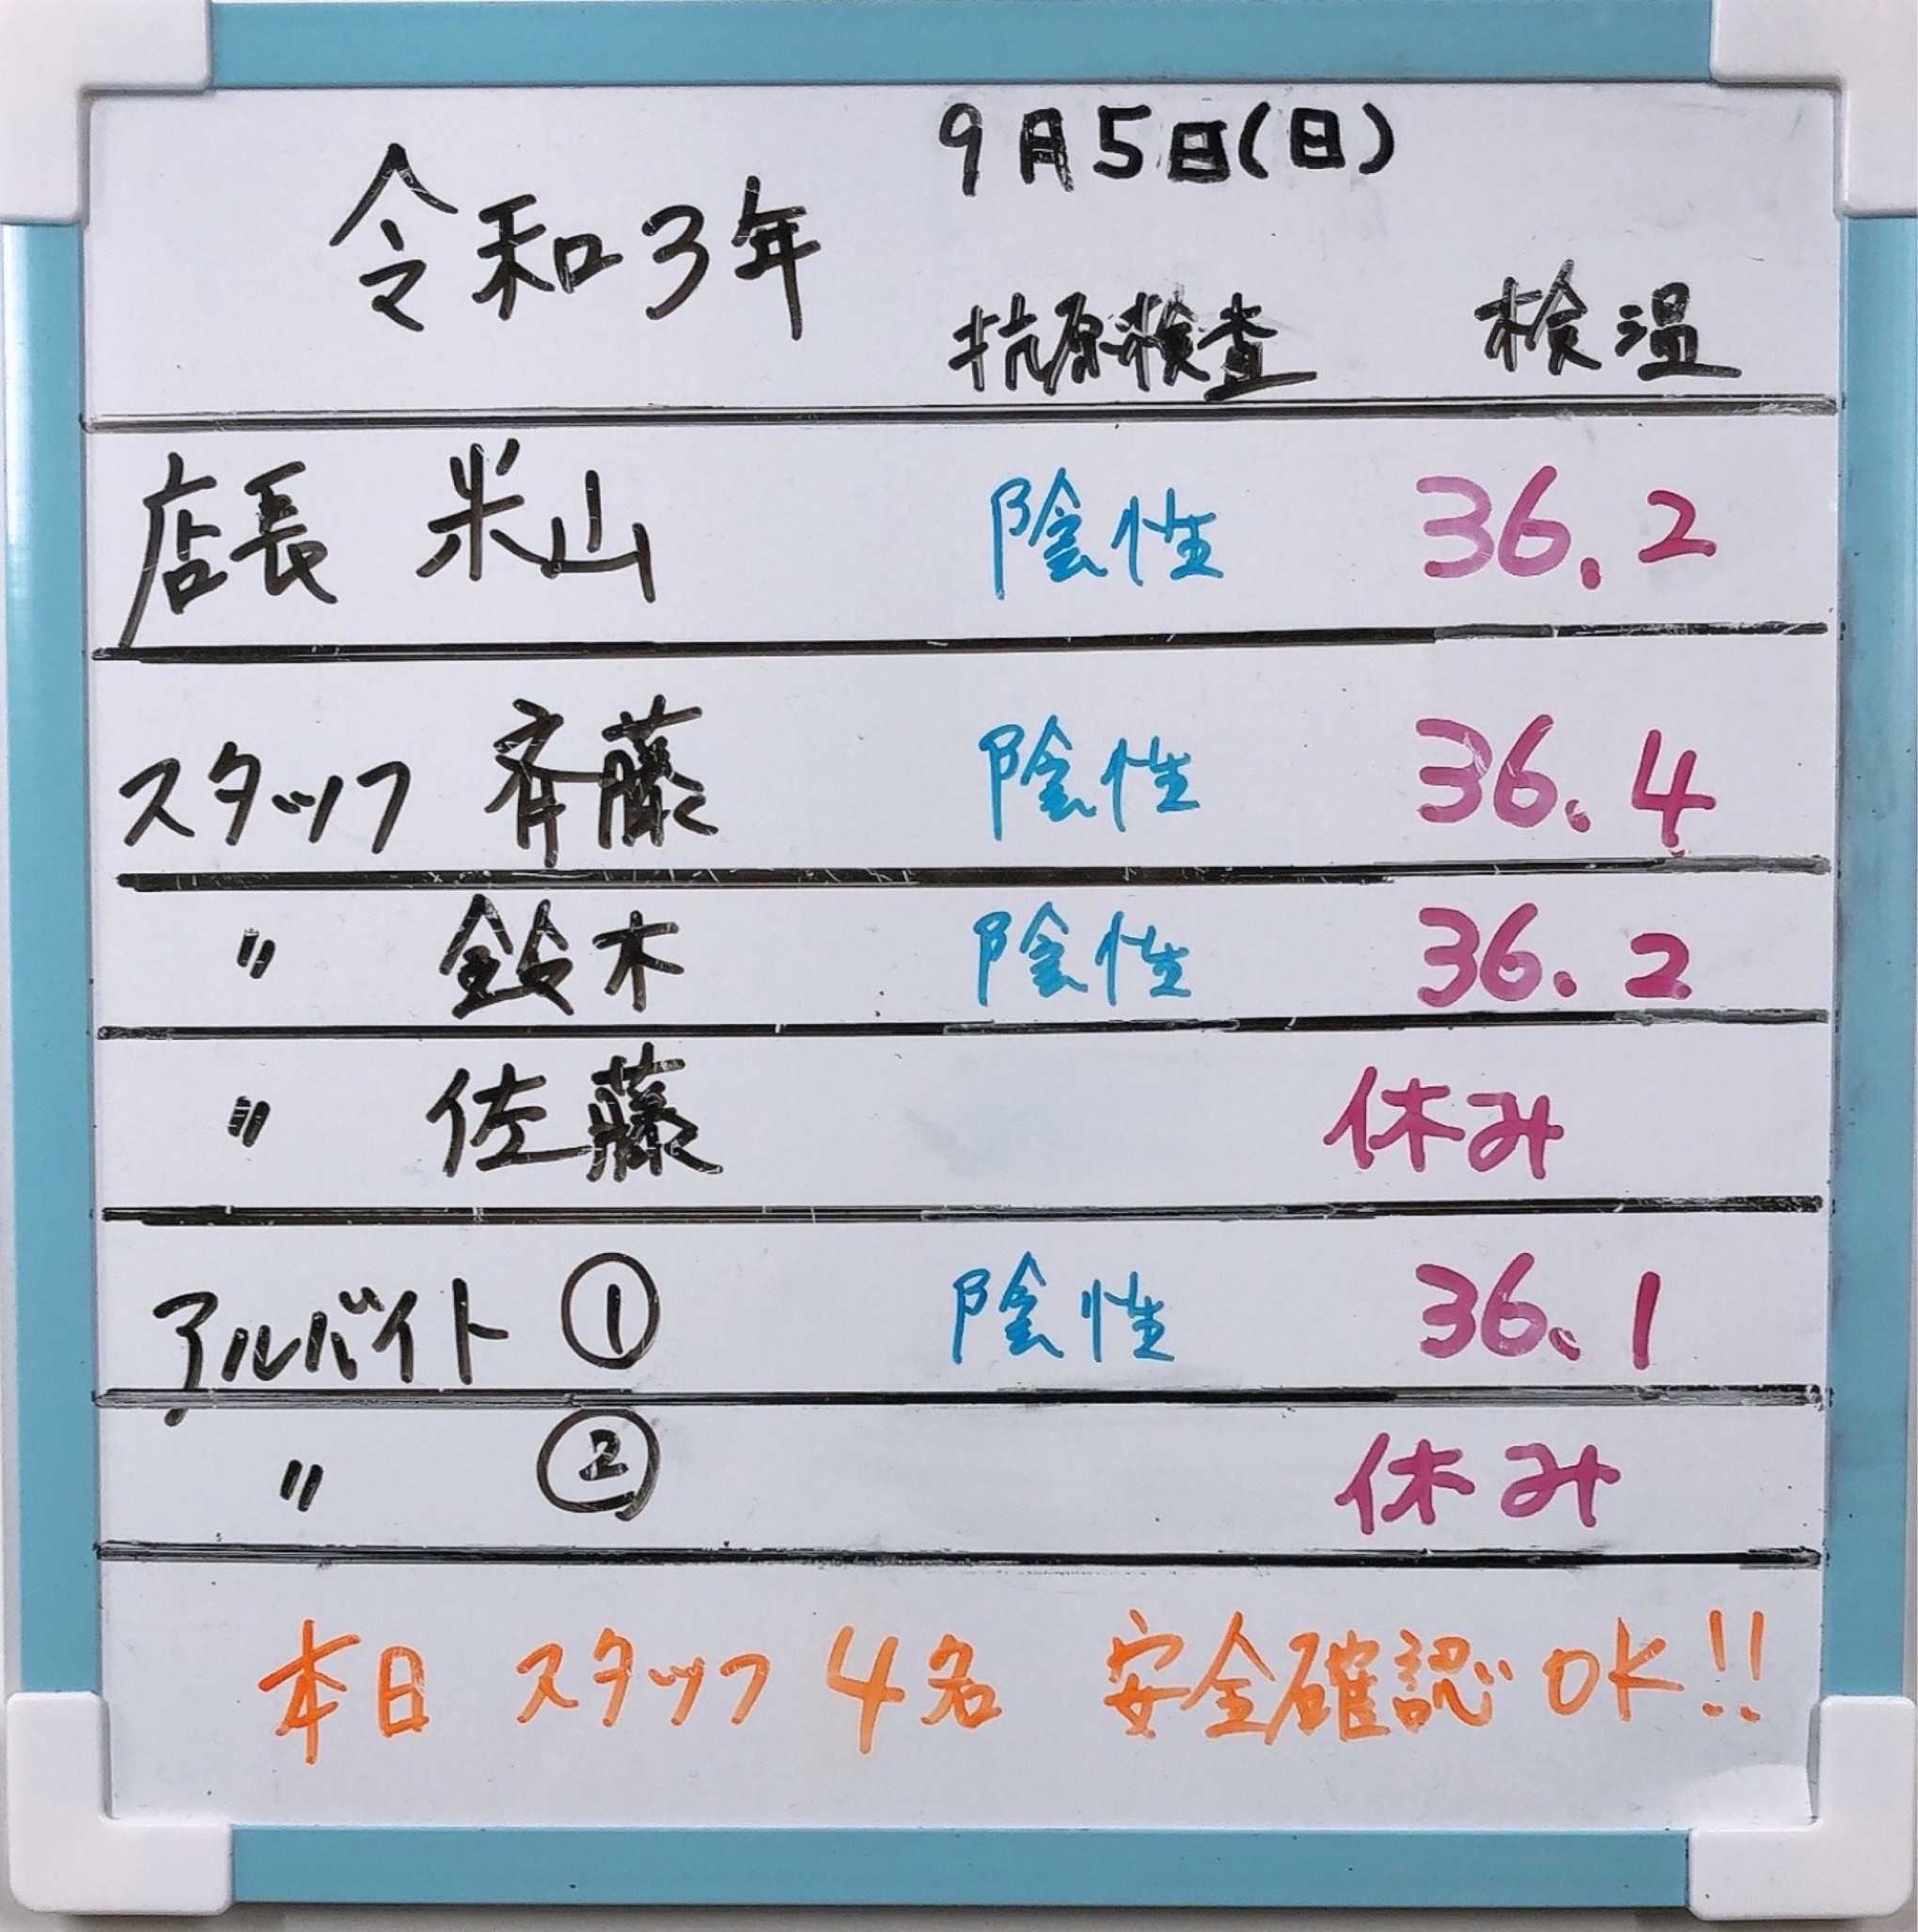 令和3年 9月5日(日)
抗原検査 検温
店長 米山 陰性 36.2
スタッフ 斉藤 陰性 36.4
〃 鈴木 陰性 36.2
〃 佐藤 休み
アルバイト ① 陰性 36.1
〃 ② 休み
本日 スタッフ 4名 安全確認OK!!